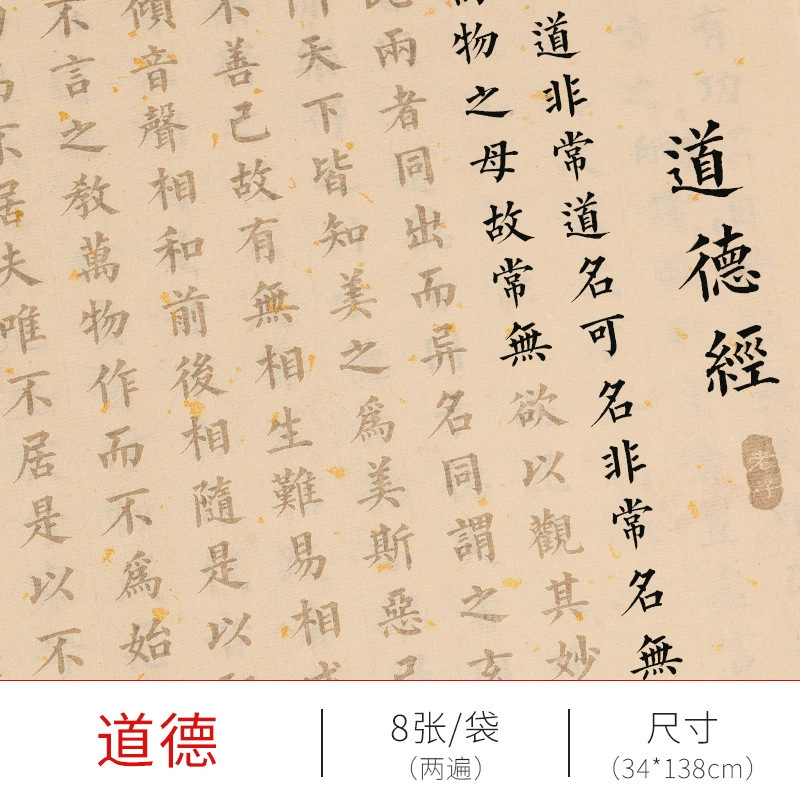 道德經
老子
道非常道名可名非常名無
物之母故常無欲以觀其妙
此兩者同出而异名同謂之玄
天下皆知美之爲美斯惡已
不善已故有無相生難易相成
傾音聲相和前後相隨是以
不言之教萬物作而不爲始
不居夫唯不居是以不
道德
8张/袋
（两遍）
尺寸
（34*138cm）